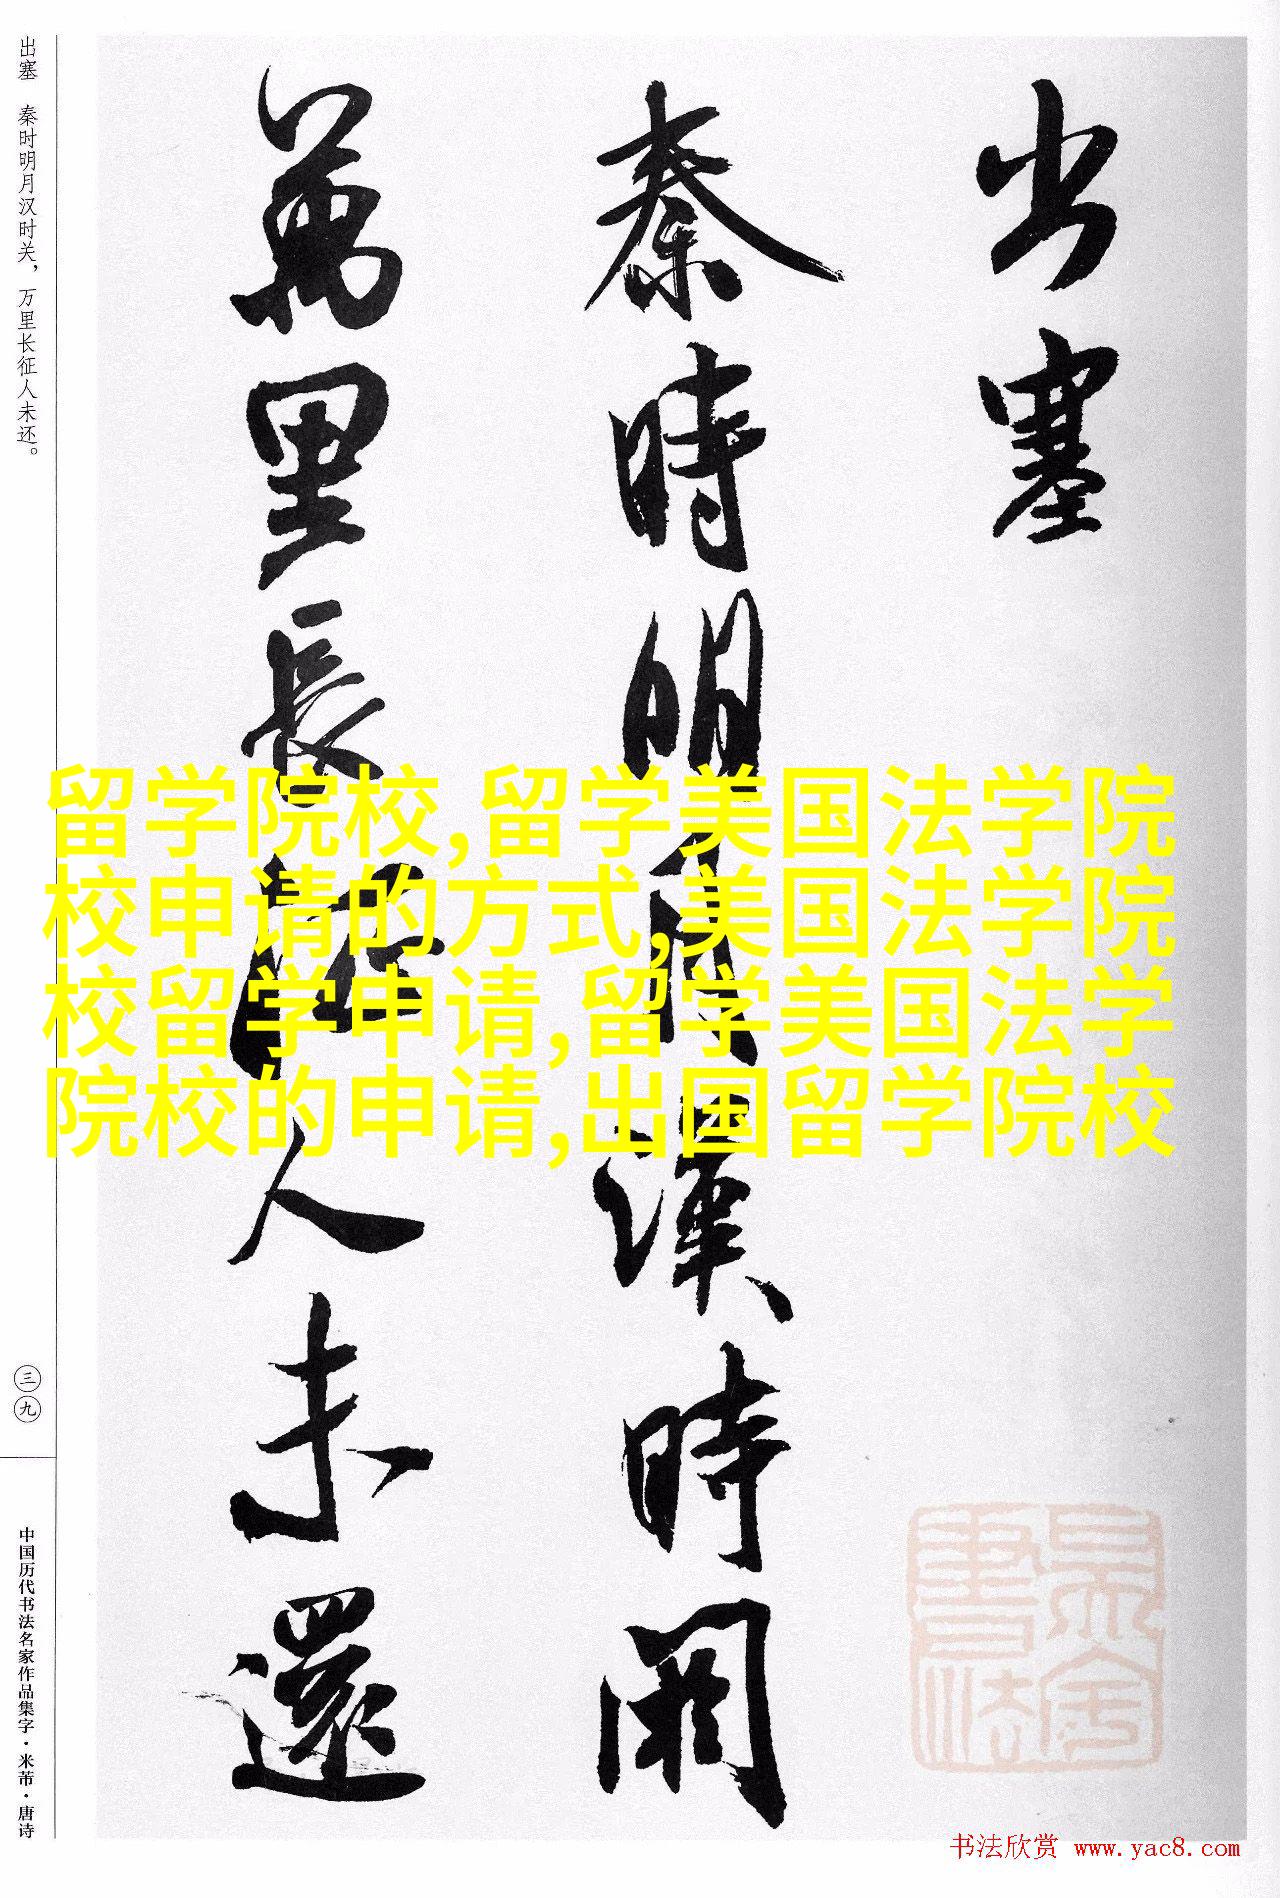 出塞
秦時明月漢時關
萬里長征人未還
出塞 秦时明月汉时关，万里长征人未还。
三九
中国历代书法名家作品集字·米芾·唐诗
留学院校,留学美国法学院
校申请的方式,美国法学院
校留学申请,留学美国法学
院校的申请,出国留学院校
书法欣赏 www.yac8.com